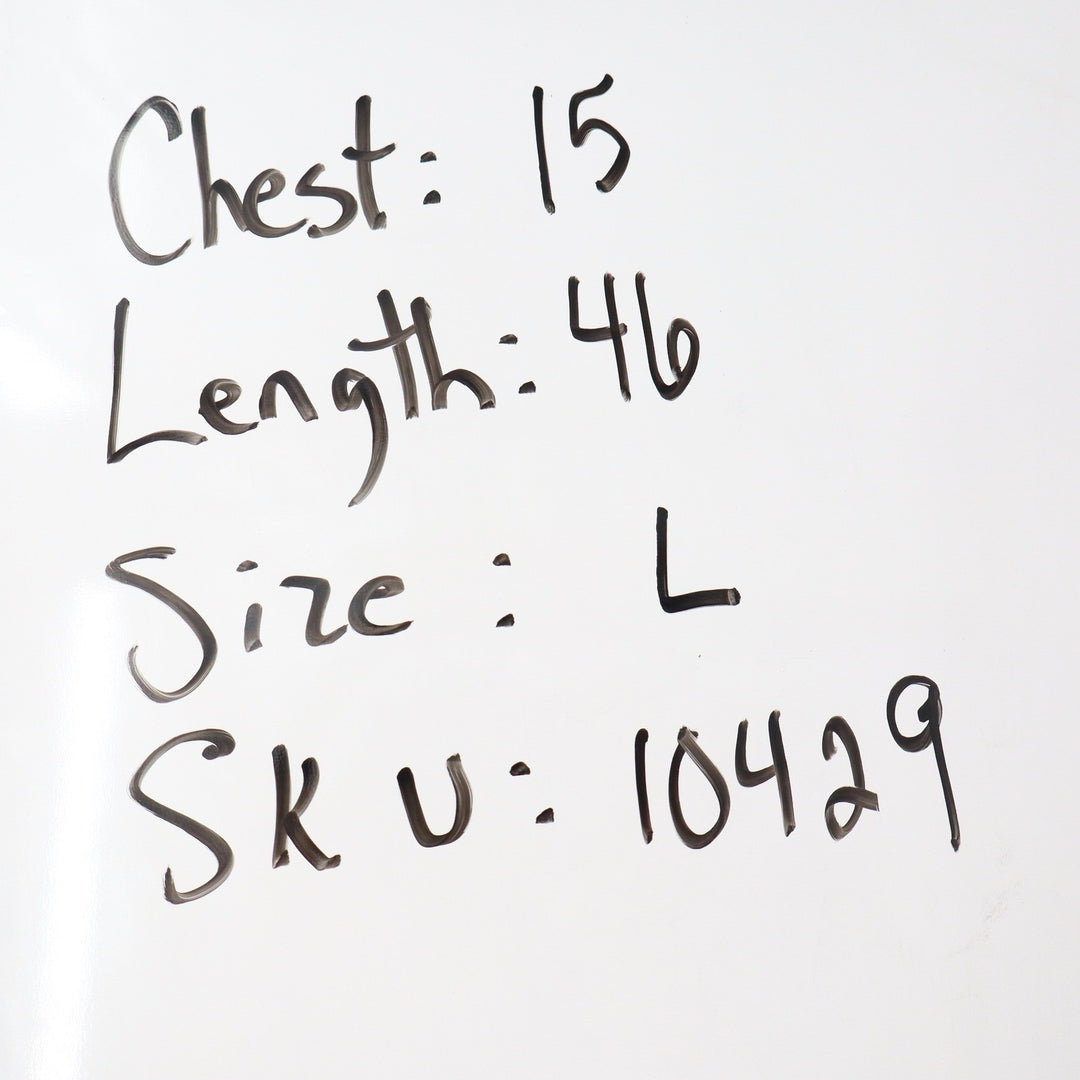 Chest: 15
Length: 46
Size: L
SKU: 10429